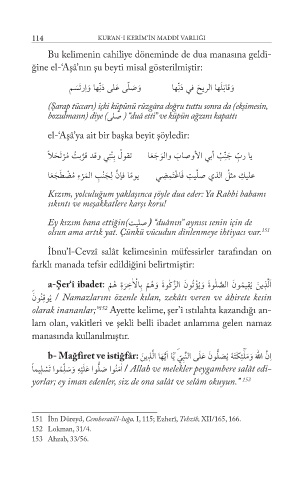 114 KUR'AN-I KERİM'İN MADDİ VARLIĞI
Bu kelimenin cahiliye döneminde de dua manasına geldi-
ğine el-'Aşâ'nın şu beyti misal gösterilmiştir:
وَقَابَلَهَا الرِّيحَ فِي دَنِّهَا وَصَلَّى عَلَى دَنِّهَا وَارْتَسَم
(Şarap tüccarı) içki küpünü rüzgâra doğru tuttu sonra da (ekşimesin,
bozulmasın) diye (صلى) "dua etti" ve küpün ağzını kapattı
el-'Aşâ'ya ait bir başka beyit şöyledir:
تقولُ بِنْتِي وقد قَرَّبتُ مُرْتَحَلاً يا ربّ جَنِّبْ أبي الأوصابَ والوَجَعَا
عليكِ مثلُ الذي صلّيتِ فَاغْتَمِضِي يومًا فإنَّ لجَنْبِ المَرْءِ مُضْطَجَعَا
Kızım, yolculuğum yaklaşınca şöyle dua eder: Ya Rabbi babamı
sıkıntı ve meşakkatlere karşı koru!
Ey kızım bana ettiğin(صليت) "duânın" aynısı senin için de
olsun ama artık yat. Çünkü vücudun dinlenmeye ihtiyacı var.¹⁵¹
İbnu'l-Cevzî salât kelimesinin müfessirler tarafından on
farklı manada tefsir edildiğini belirtmiştir:
a-Şer'i ibadet: الَّذِينَ يُقِيمُونَ الصَّلٰوةَ وَيُؤْتُونَ الزَّكٰوةَ وَهُمْ بِالْاٰخِرَةِ هُمْ
يُوقِنُونَ / Namazlarını özenle kılan, zekâtı veren ve âhirete kesin
olarak inananlar;"¹⁵² Ayette kelime, şer'î ıstılahta kazandığı an-
lam olan, vakitleri ve şekli belli ibadet anlamına gelen namaz
manasında kullanılmıştır.
b- Mağfiret ve istiğfâr: اِنَّ اللهَ وَمَلٰٓئِكَتَهُ يُصَلُّونَ عَلَى النَّبِيِّ يَٓا اَيُّهَا الَّذِينَ
اٰمَنُوا صَلُّوا عَلَيْهِ وَسَلِّمُوا تَسْلِيمًا / Allah ve melekler peygambere salât edi-
yorlar; ey iman edenler, siz de ona salât ve selâm okuyun."¹⁵³
151 İbn Düreyd, Cemheratü'l-luga. I, 115; Ezherî, Tehzib. XII/165, 166.
152 Lokman, 31/4.
153 Ahzab, 33/56.